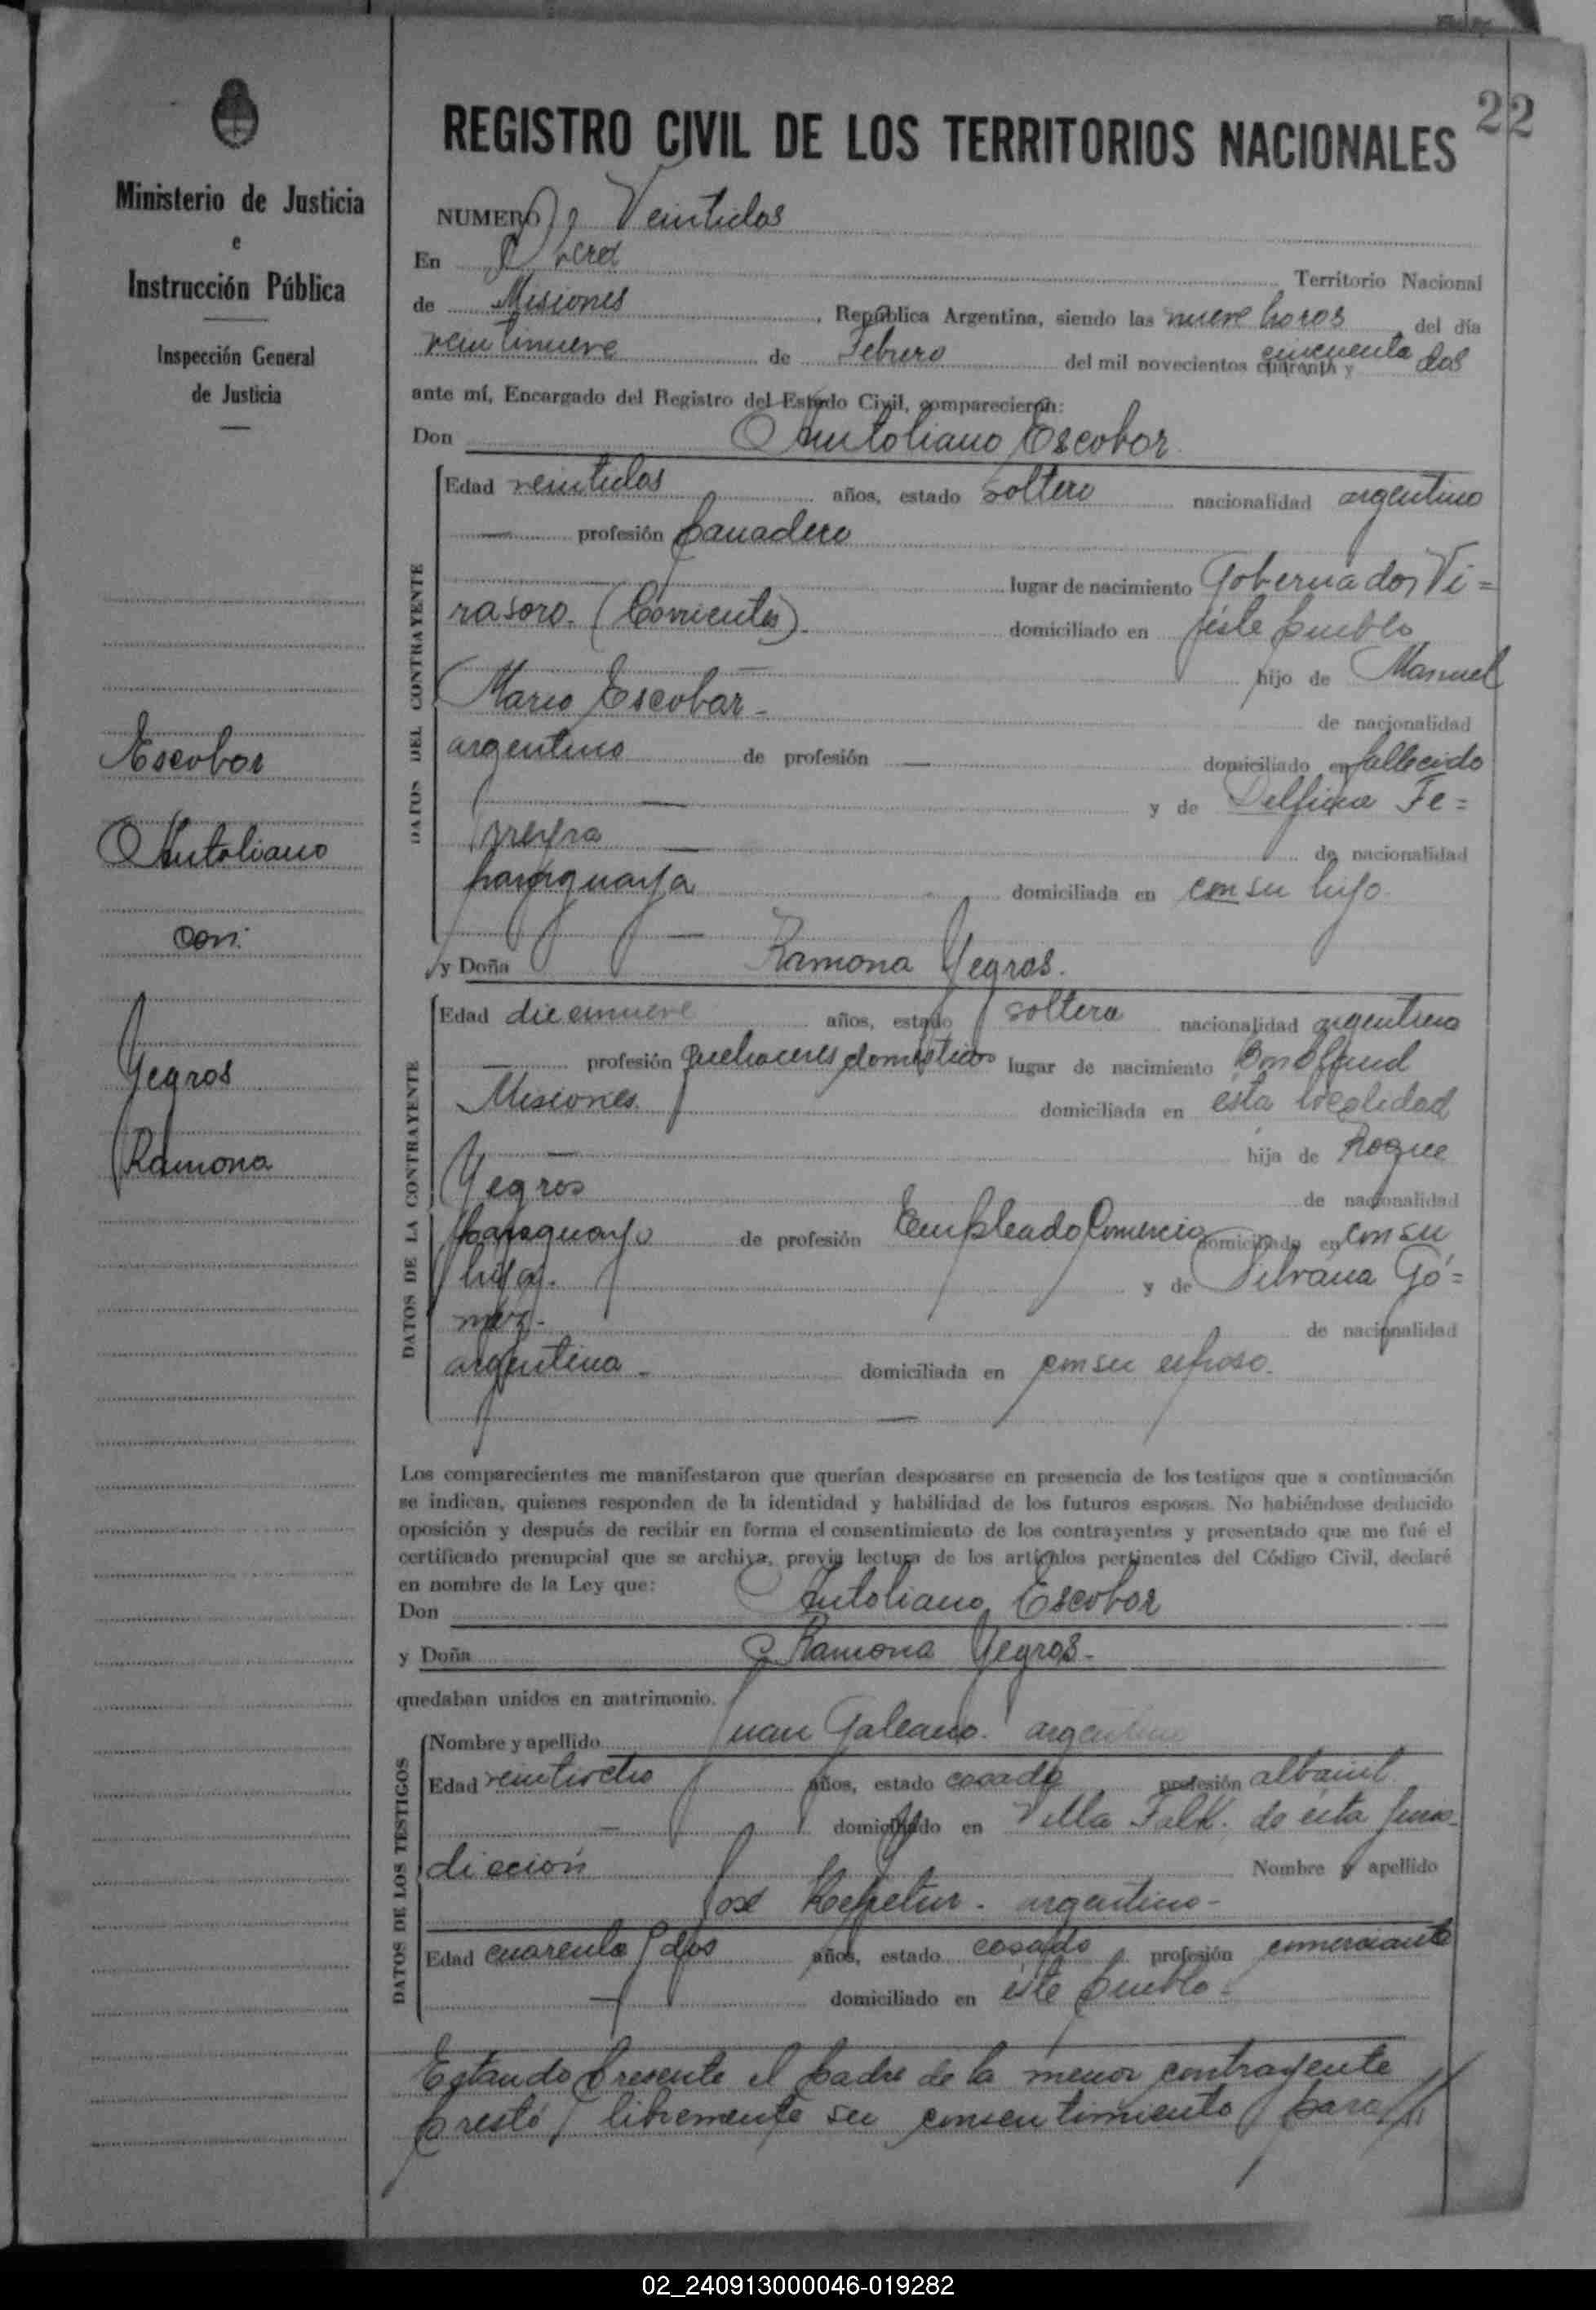 22
Ministerio de Justicia
e
Instrucción Pública
Inspección General
de Justicia
Escobar
Antoliano
con
Yegros
Ramona
REGISTRO CIVIL DE LOS TERRITORIOS NACIONALES
NUMERO Veintidos
En Oberá Territorio Nacional
de Misiones, República Argentina, siendo las nueve horas del día
veintinueve de Febrero del mil novecientos cuarenta y cincuenta dos
ante mí, Encargado del Registro del Estado Civil, comparecieron:
Don Antoliano Escobar
DATOS DEL CONTRAYENTE
Edad veintidos años, estado soltero nacionalidad argentino
— profesión panadero
lugar de nacimiento Gobernador Vi=
rasoro. (Corrientes). domiciliado en éste pueblo
— hijo de Manuel
Mario Escobar - de nacionalidad
argentino de profesión — domiciliado en fallecido
— y de Delfina Fe=
rreyra — de nacionalidad
paraguaya domiciliada en con su hijo.
—
y Doña Ramona Yegros.
DATOS DE LA CONTRAYENTE
Edad diecinueve años, estado soltera nacionalidad argentina
— profesión Quehaceres domésticos lugar de nacimiento Bonpland
Misiones. domiciliada en ésta localidad
— hija de Roque
Yegros de nacionalidad
paraguayo de profesión Empleado Comercio domiciliado en con su
hija. y de Silvana Gó=
mez.- de nacionalidad
argentina - domiciliada en con su esposo.
—
Los comparecientes me manifestaron que querían desposarse en presencia de los testigos que a continuación
se indican, quienes responden de la identidad y habilidad de los futuros esposos. No habiéndose deducido
oposición y después de recibir en forma el consentimiento de los contrayentes y presentado que me fué el
certificado prenupcial que se archiva, previa lectura de los artículos pertinentes del Código Civil, declaré
en nombre de la Ley que:
Don Antoliano Escobar
y Doña Ramona Yegros.-
quedaban unidos en matrimonio.
DATOS DE LOS TESTIGOS
Nombre y apellido Juan Galeano. argentino
Edad veintiocho años, estado casado profesión albañil
— domiciliado en Villa Falk. de ésta juris-
dicción Nombre y apellido
José - argentino -
Edad cuarenta y dos años, estado casado profesión comerciante
— domiciliado en éste pueblo -
Estando presente el padre de la menor contrayente
prestó libremente su consentimiento para //
02_240913000046-019282